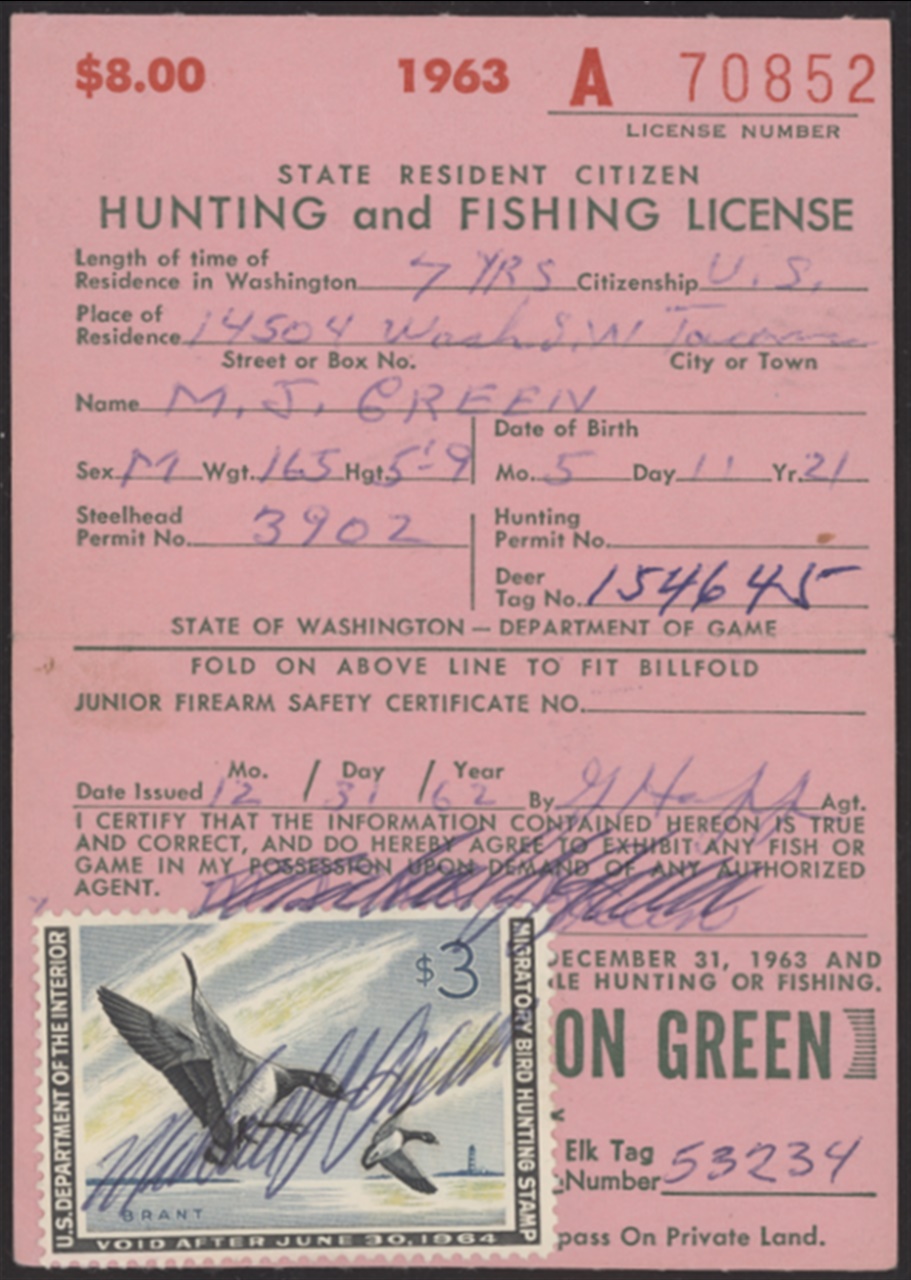 $8.00 1963 A 70852
LICENSE NUMBER
STATE RESIDENT CITIZEN
HUNTING and FISHING LICENSE
Length of time of
Residence in Washington 7 YRS Citizenship U.S.
Place of
Residence 14504 Wash. S.W Tacoma
Street or Box No. City or Town
Name M. J. GREEN
Date of Birth
Sex M Wgt. 165 Hgt. 5'-9 Mo. 5 Day 11 Yr. 21
Steelhead
Permit No. 3902
Hunting
Permit No.
Deer
Tag No. 154645
STATE OF WASHINGTON — DEPARTMENT OF GAME
FOLD ON ABOVE LINE TO FIT BILLFOLD
JUNIOR FIREARM SAFETY CERTIFICATE NO.
Mo. / Day / Year
Date Issued 12 31 62 By Agt.
I CERTIFY THAT THE INFORMATION CONTAINED HEREON IS TRUE
AND CORRECT, AND DO HEREBY AGREE TO EXHIBIT ANY FISH OR
GAME IN MY POSSESSION UPON DEMAND OF ANY AUTHORIZED
AGENT.
DECEMBER 31, 1963 AND
LE HUNTING OR FISHING.
ON GREEN
Elk Tag
Number 53234
pass On Private Land.
U.S. DEPARTMENT OF THE INTERIOR
$3
MIGRATORY BIRD HUNTING STAMP
BRANT
VOID AFTER JUNE 30, 1964